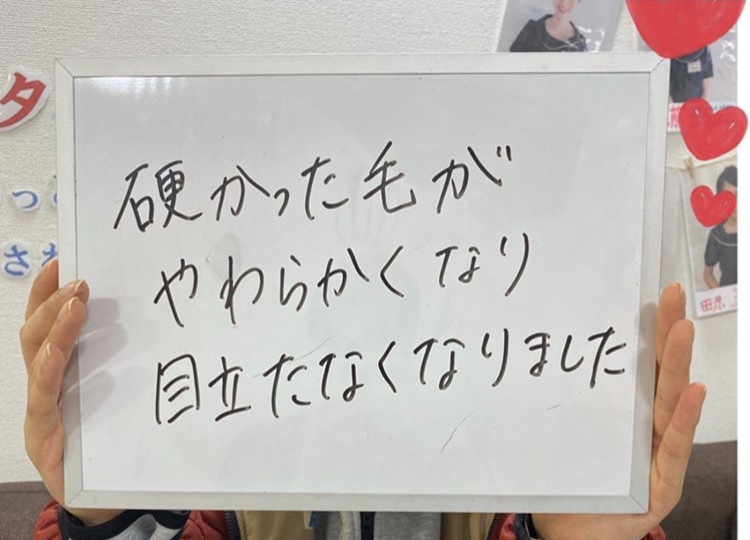 硬かった毛が
やわらかくなり
目立たなくなりました
タ
っ
さ
田原